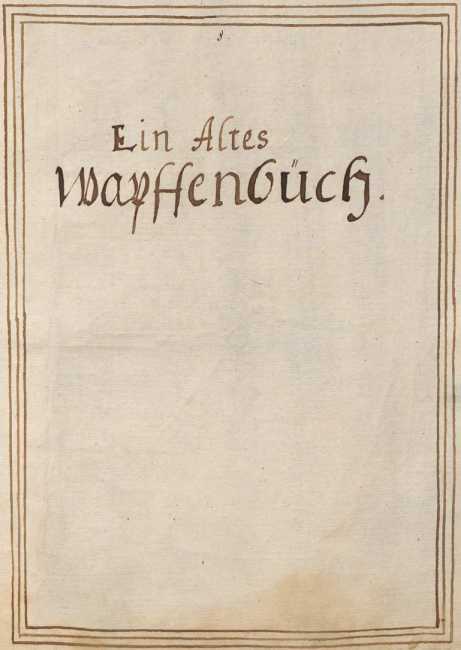 8.
Ein Altes
Wapffenbüch.